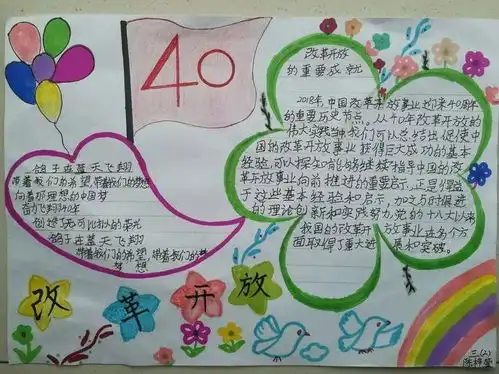 40
改革开放
的重要成就
2018年,中国改革开放事业迎来40周年
的重要历史节点。从40年改革开放的
伟大实践当中我们可以总结出促使中
国的改革开放事业获得巨大成功的基本
经验,可以探知能够继续指导中国的改
革开放事业向前推进的重要启示,正是得益
于这些基本经验和启示,加之及时跟进
的理论创新和实践努力,党的十八大以来
我国的改革开放事业在多个方
面取得了重大进展和突破。
鸽子在蓝天飞翔
带着我们的希望,带着我们的梦想
向着那理想的中国梦
奋飞40年
创造无可比拟的荣光
鸽子在蓝天飞翔
带着我们的希望,带着我们的梦
梦想
改革开放
三(2)
陈